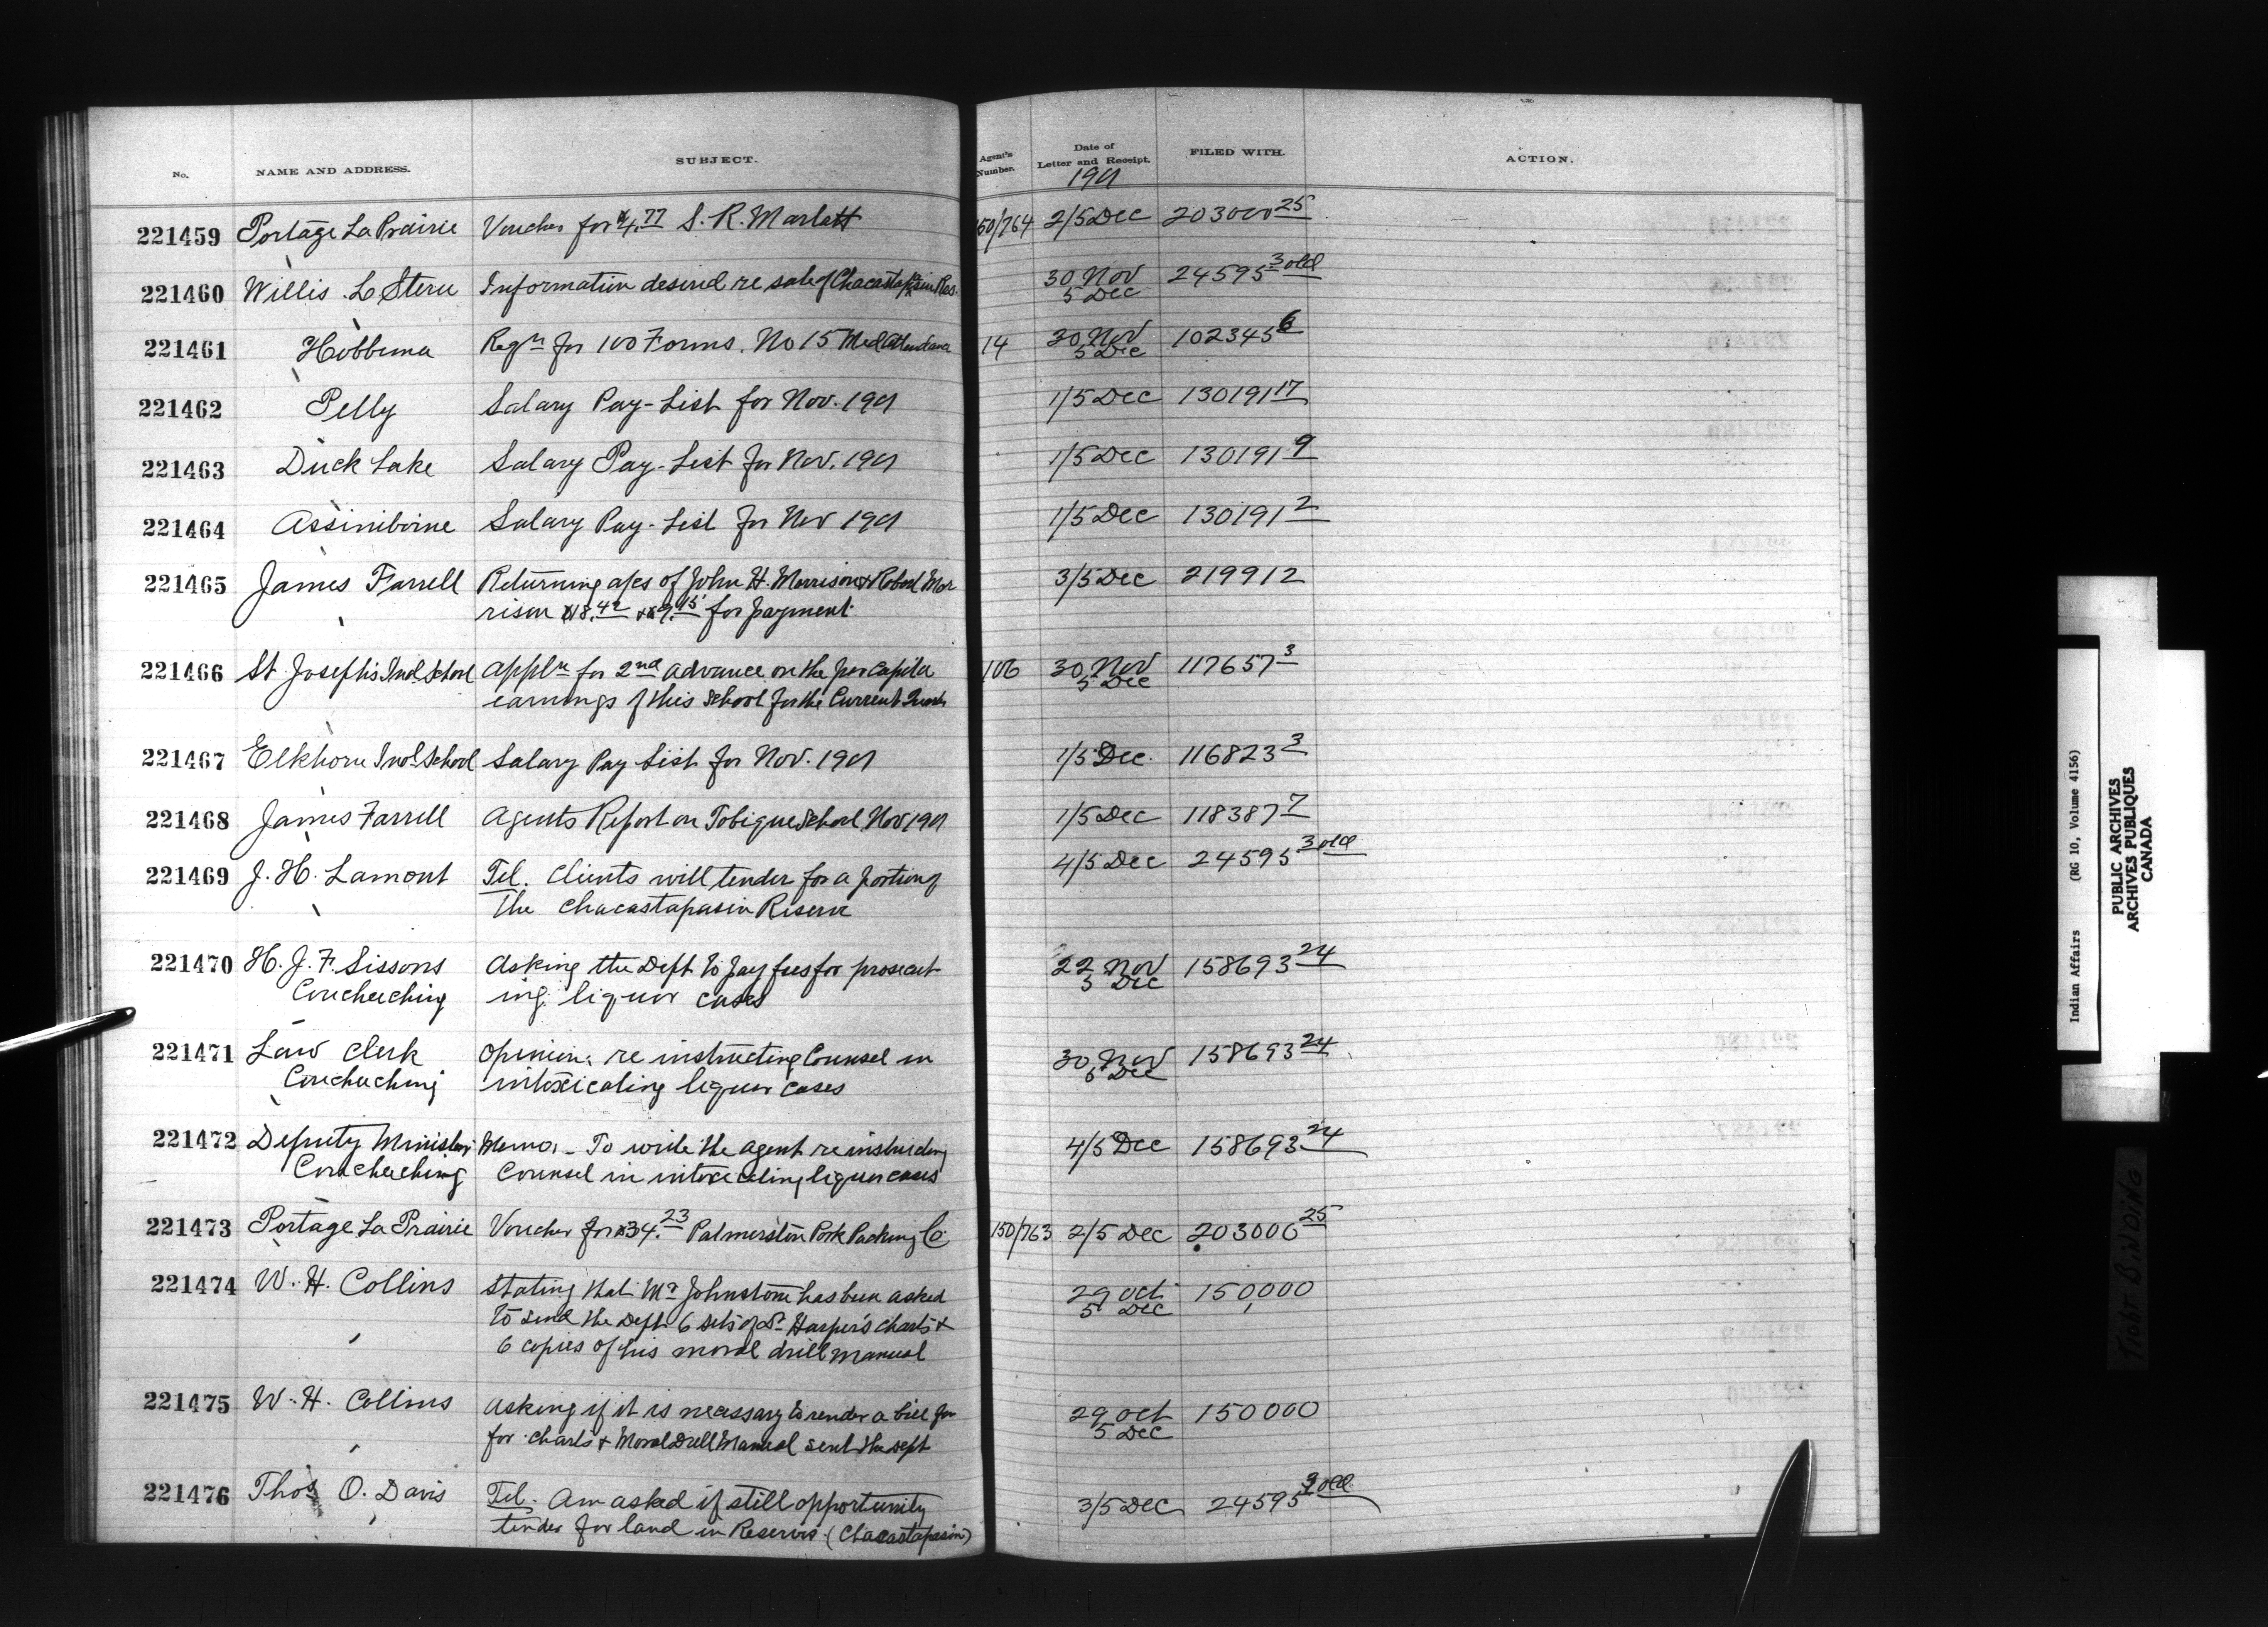 No. NAME AND ADDRESS. SUBJECT. Agent's Number. Date of Letter and Receipt. FILED WITH. ACTION.
1901
221459 Portage La Prairie Voucher for $4.77 S. R. Marlatt 150/764 2/5 Dec 203000 25
221460 Willis Information desired re sale of Chacastapasin Res. 30 Nov 24595 3 old
5 Dec
221461 Hobbema Reqn for 100 Forms. No 15 Med Attendance 14 30 Nov 102345 6
5 Dec
221462 Pelly Salary Pay-List for Nov. 1901 1/5 Dec 130191 17
221463 Duck Lake Salary Pay-List for Nov. 1901 1/5 Dec 130191 9
221464 Assiniboine Salary Pay-List for Nov 1901 1/5 Dec 130191 2
221465 James Farrell Returning a/cs of John H. Morrison & Robert Mor 3/5 Dec 219912
rison $18.42 & $9.15 for payment
221466 St Joseph's Ind School Appln for 2nd advance on the per capita 106 30 Nov 117657 3
earnings of this School for the Current 5 Dec
221467 Elkhorn Ind School Salary Pay List for Nov. 1901 1/5 Dec. 116823 3
221468 James Farrell Agents Report on Tobique School, Nov 1901 1/5 Dec 118387 7
221469 J. H. Lamont Tel. Clients will tender for a portion of 4/5 Dec 24595 3 old
the Chacastapasin Reserve
221470 H. J. F. Sissons Asking the Dept to pay fees for prosecut- 22 Nov 158693 24
Coucheeching ing liquor cases 5 Dec
221471 Law Clerk Opinion re instructing Counsel in 30 Nov 158693 24
Coucheeching intoxicating liquor cases 5 Dec
221472 Deputy Minister Memo. - To write the agent re instructing 4/5 Dec 158693 24
Coucheeching Counsel in intoxicating liquor cases
221473 Portage La Prairie Voucher for $34.23 Palmerston Pork Packing Co 150/763 2/5 Dec 203000 25
221474 W. H. Collins Stating that Mr Johnstone has been asked 29 Oct 150,000
to send the Dept 6 sets of Dr Harper's charts & 5 Dec
6 copies of his moral drill manual
221475 W. H. Collins Asking if it is necessary to render a bill for 29 Oct 150000
for charts & Moral Drill Manual sent the Dept 5 Dec
221476 Thos O. Davis Tel. Am asked if still opportunity 3/5 Dec 24595 3 old
tender for land in Reserves (Chacastapasin)
Indian Affairs (RG 10, Volume 4156)
PUBLIC ARCHIVES
ARCHIVES PUBLIQUES
CANADA
TIGHT BINDING